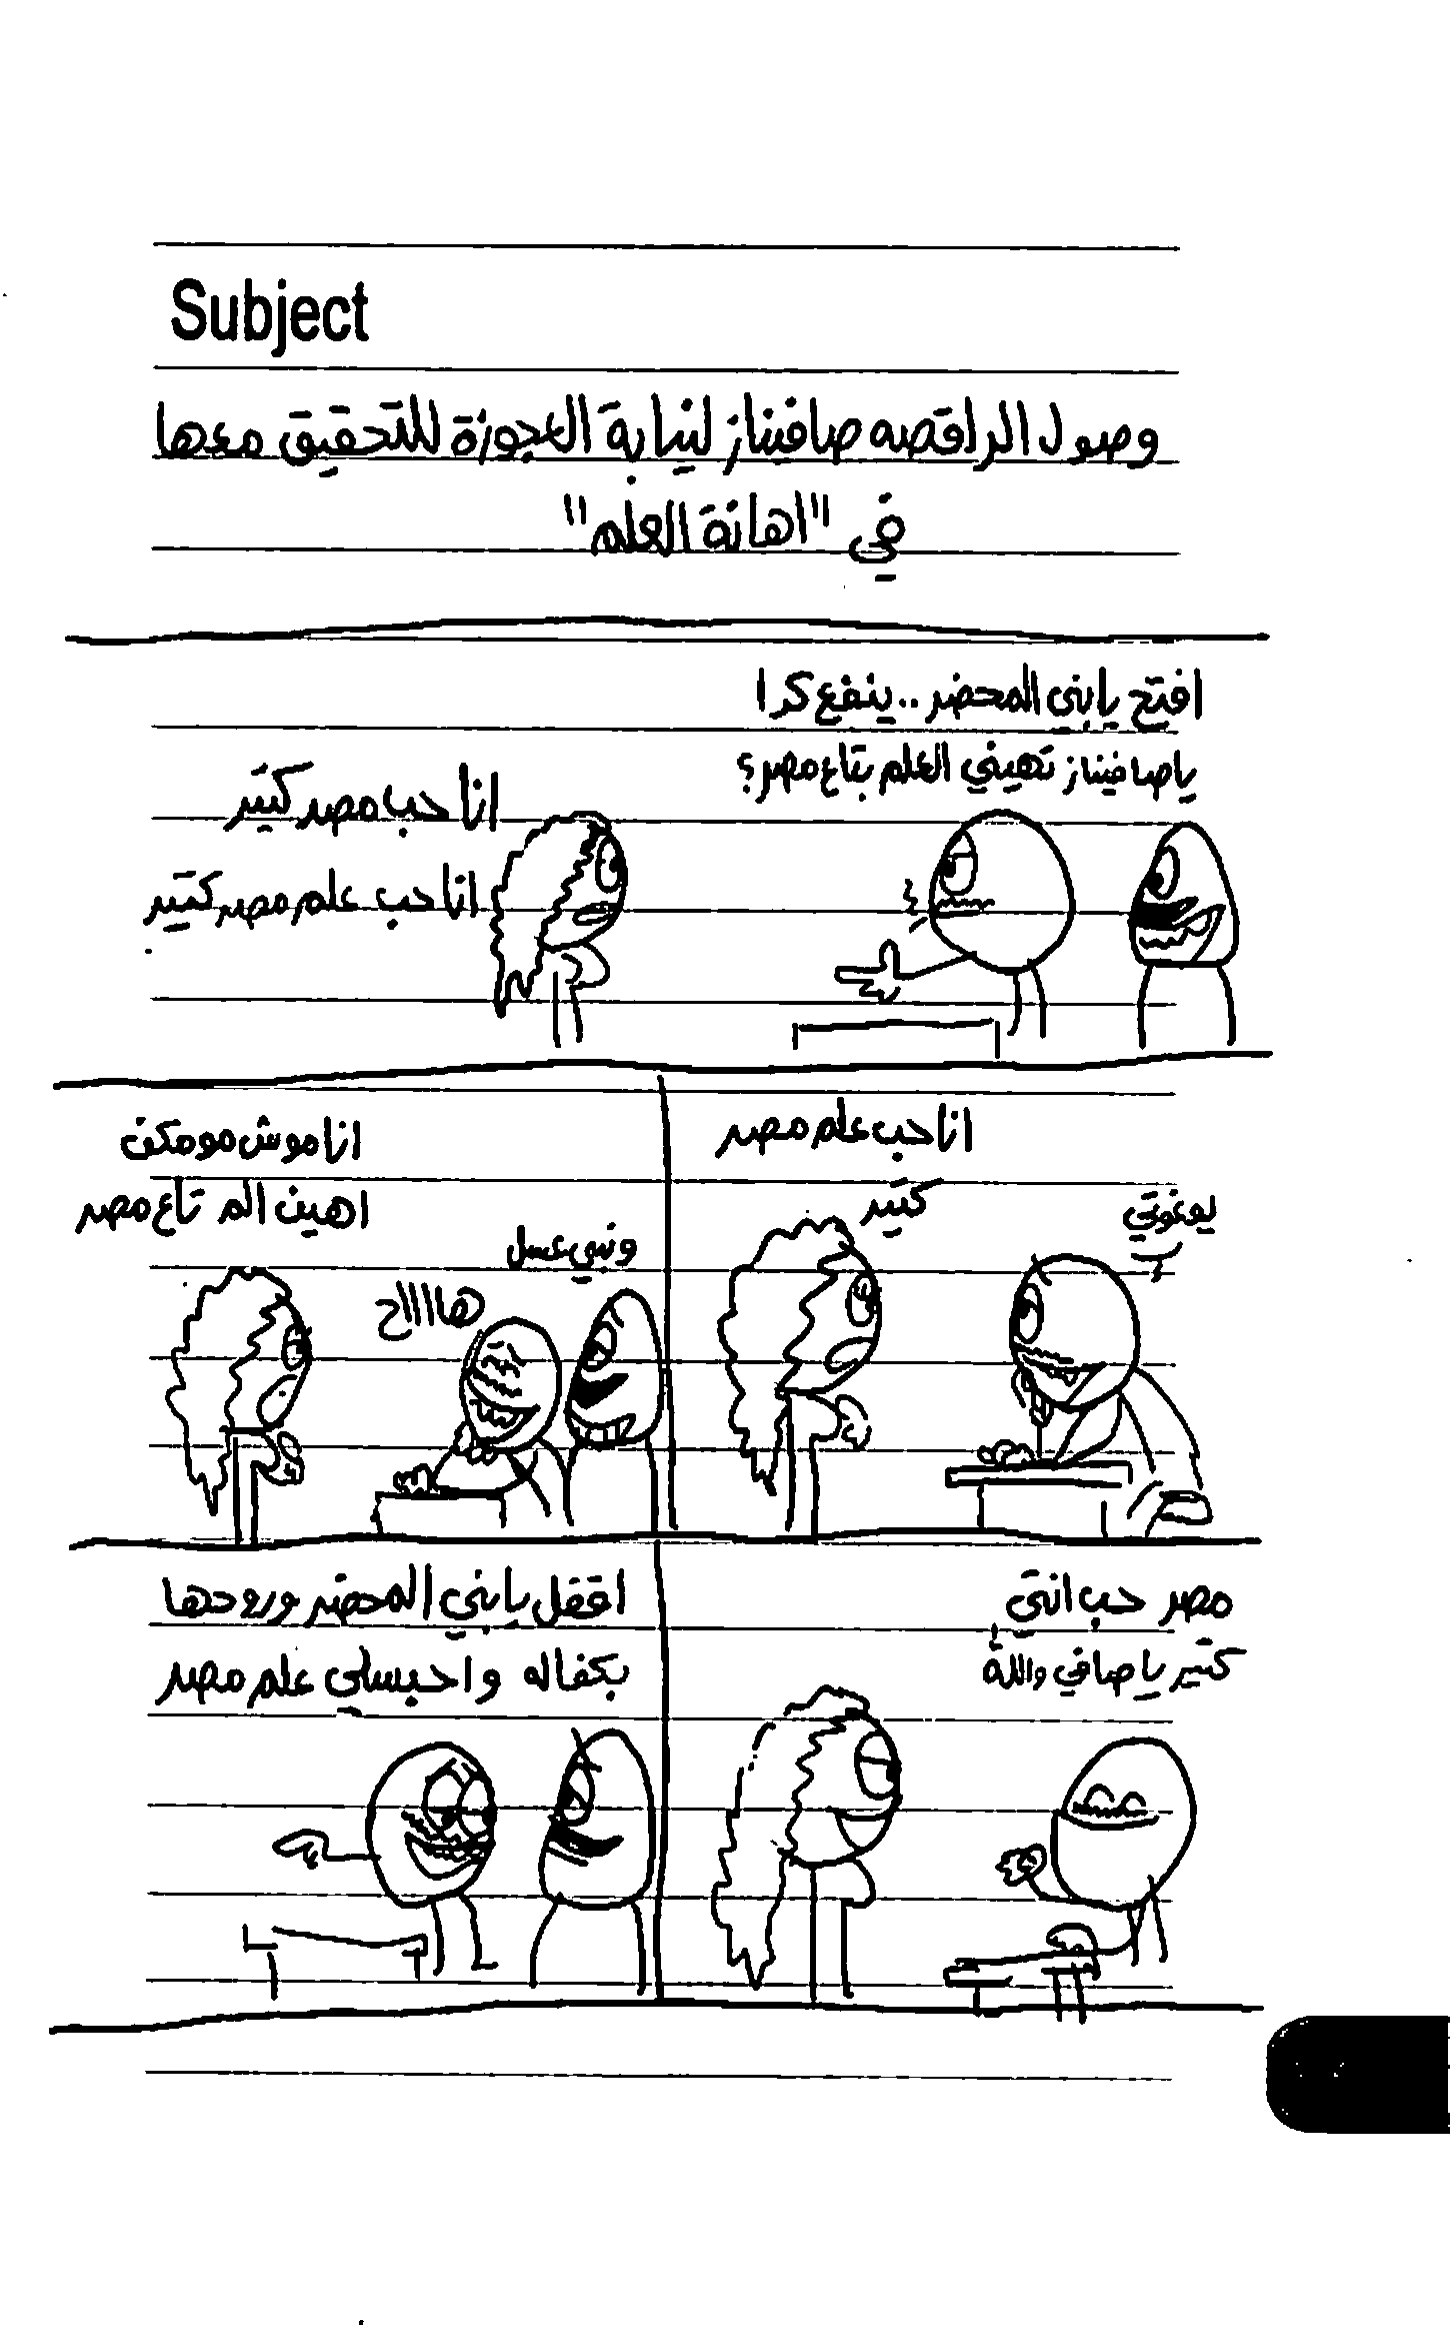 Subject
وصول الراقصه صافيناز لنيابة العجوزة للتحقيق معها
في "اهانة العلم"
افتح يابني المحضر.. ينفع كدا
ياصافيناز تهيني العلم بتاع مصر؟
انا حب مصر كتير
انا حب علم مصر كتير
انا حب علم مصر
كتير
يوغوتي
انا موش مومكن
اهين الم تاع مصر
ونبي عسل
هااااح
مصر حب انتي
كتير يا صافي والله
اقفل يابني المحضر وروحها
بكفاله واحبسلي علم مصر